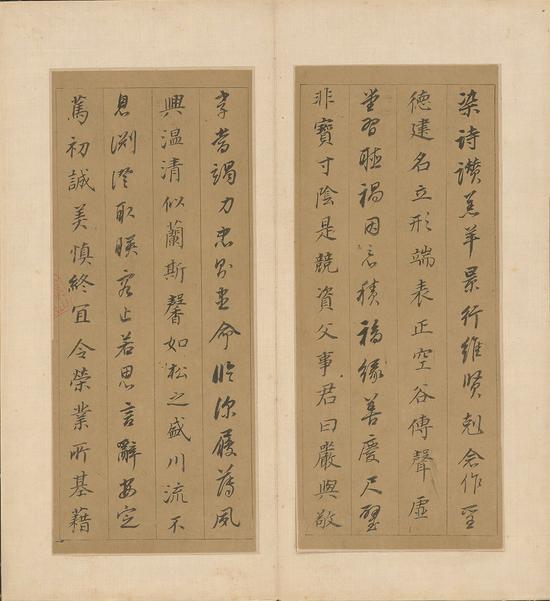 染詩讚羔羊景行維賢剋念作聖
德建名立形端表正空谷傳聲虛
堂習聽禍因惡積福緣善慶尺璧
非寶寸陰是競資父事君曰嚴與敬
孝當竭力忠則盡命臨深履薄夙
興温清似蘭斯馨如松之盛川流不
息淵澄取暎容止若思言辭安定
篤初誠美慎終宜令榮業所基藉